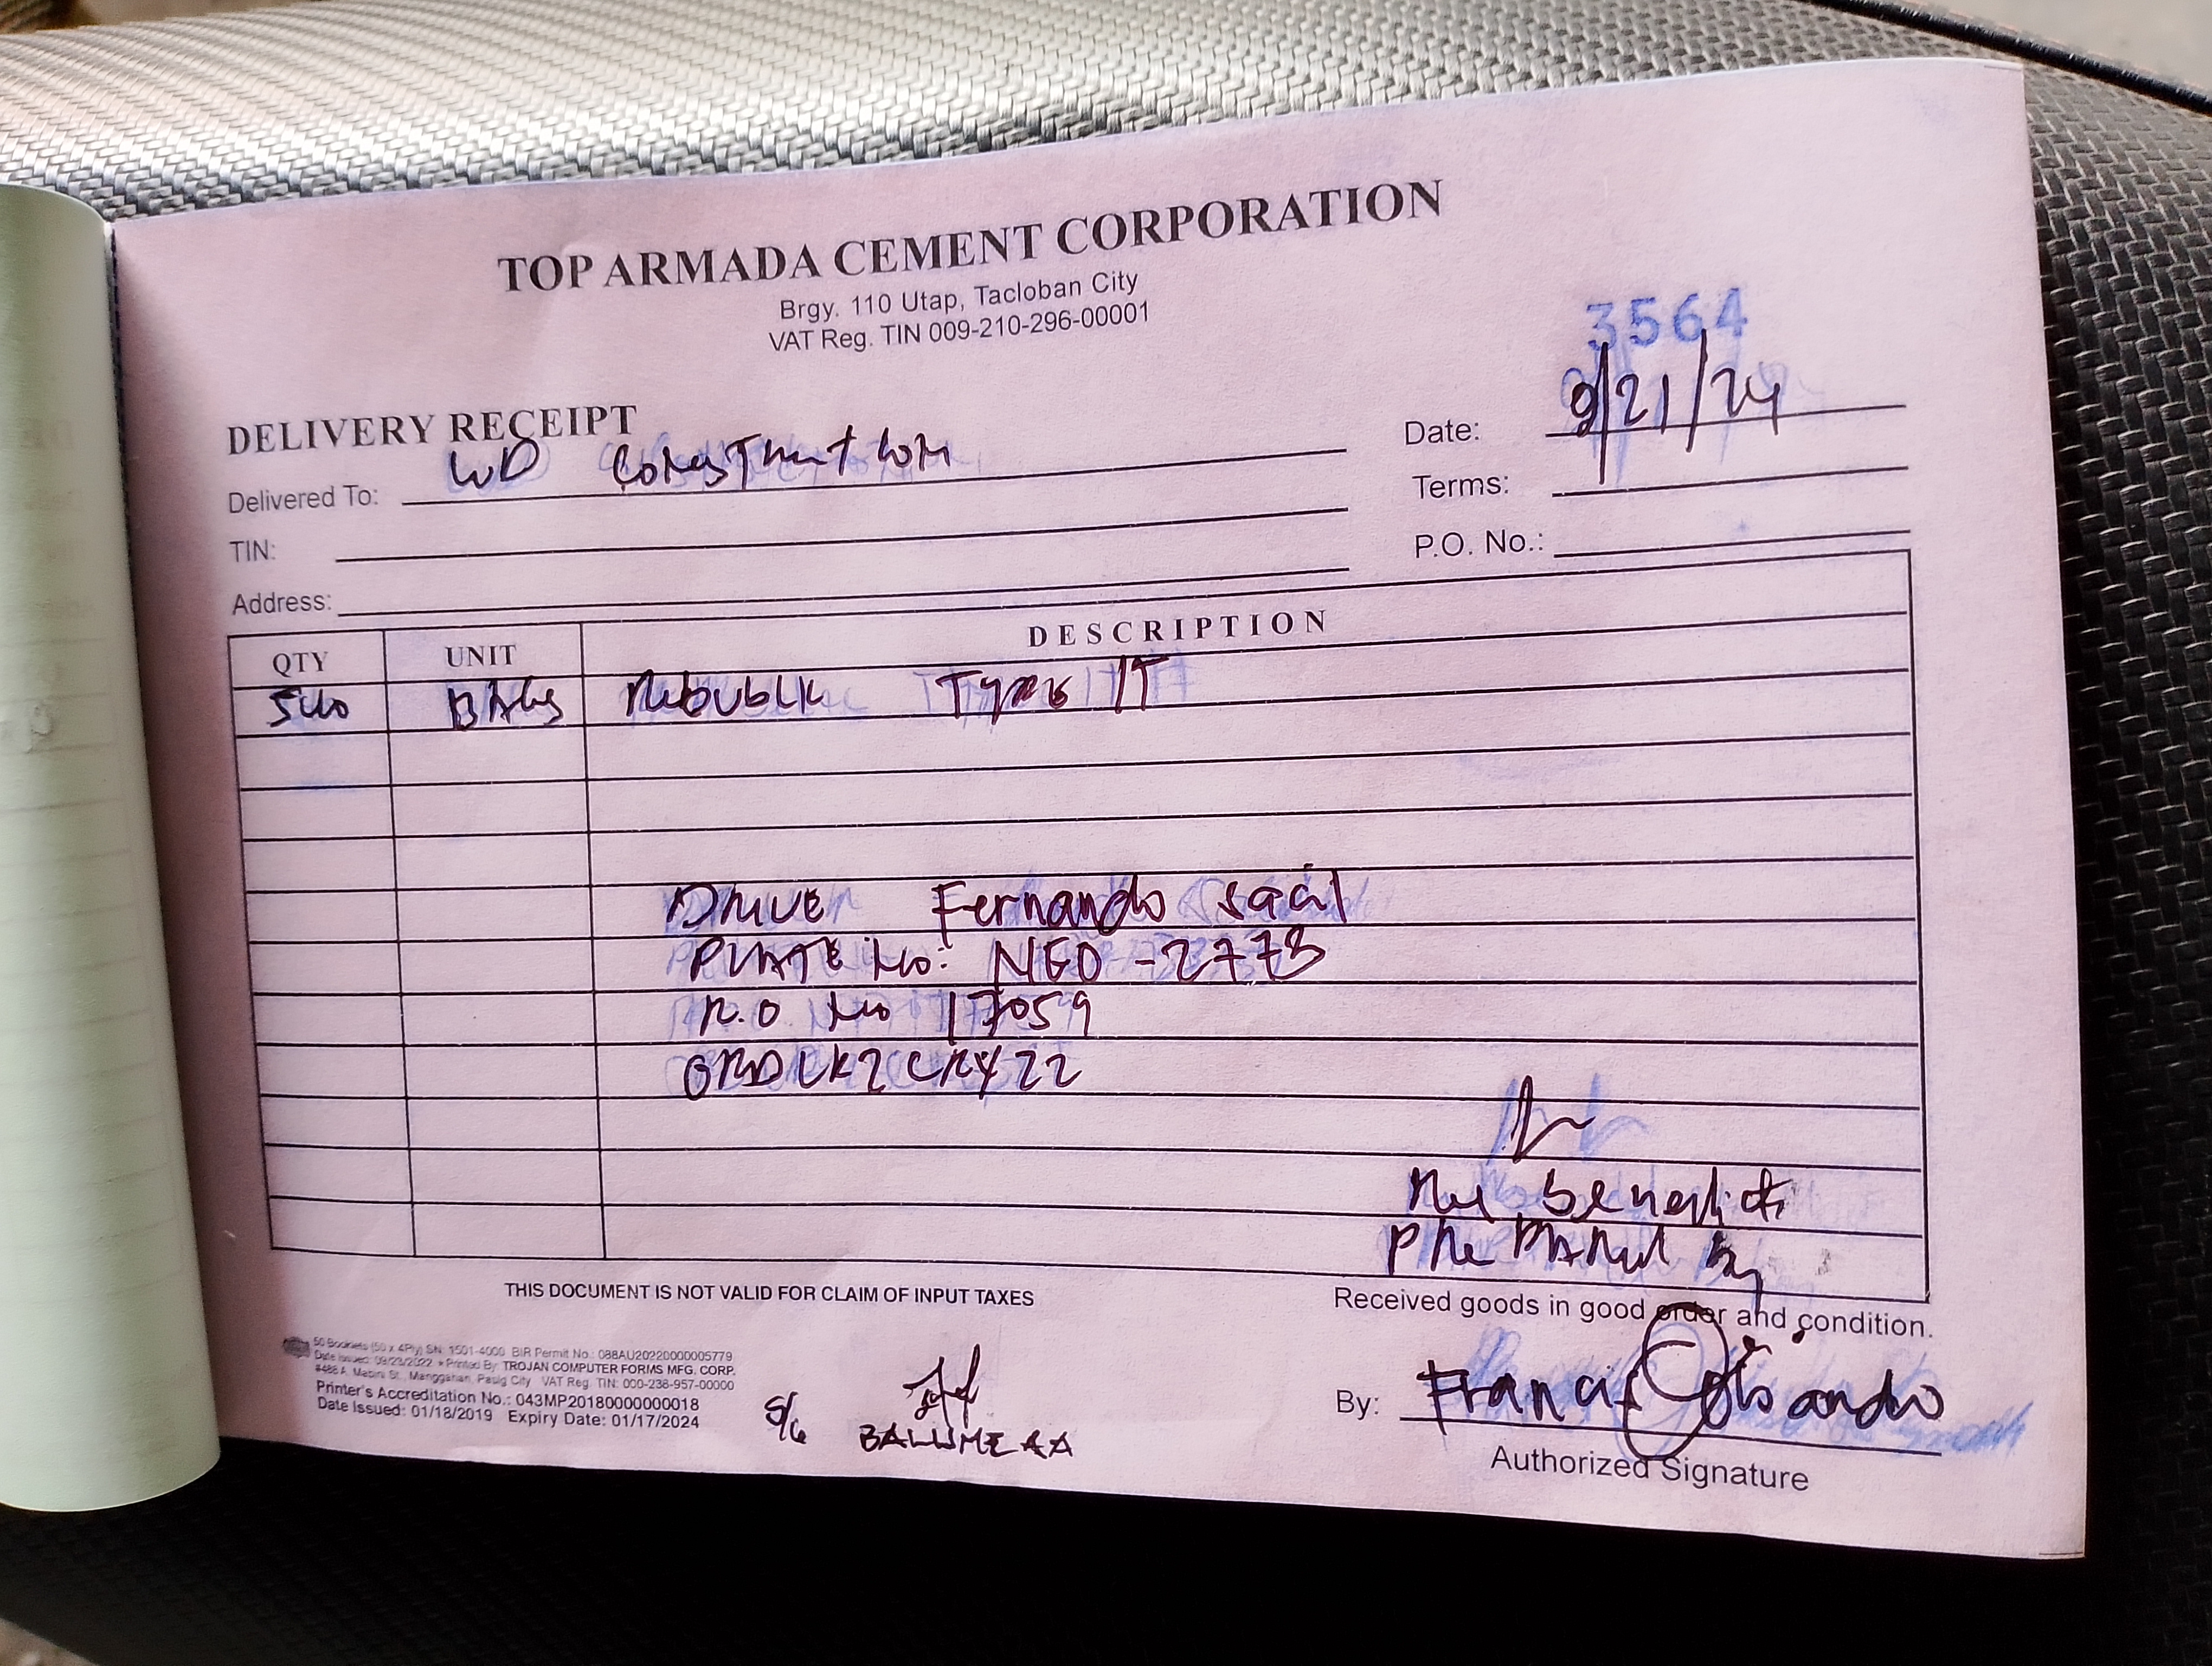 TOP ARMADA CEMENT CORPORATION
Brgy. 110 Utap, Tacloban City
VAT Reg. TIN 009-210-296-00001
3564
DELIVERY RECEIPT
Date: 9/21/24
Delivered To: WD Construction
Terms:
TIN:
P.O. No.:
Address:
QTY UNIT DESCRIPTION
540 BAGS Republic Type 1T
Driver Fernando Saail
PLATE No: NGO-2773
R.O No 17059
ORDLK2CRY22
Benedicto
Prepared by
THIS DOCUMENT IS NOT VALID FOR CLAIM OF INPUT TAXES
Received goods in good order and condition.
50 Booklets (50 x 4Ply) SN: 1501-4000 BIR Permit No.: 088AU20220000005779
Date Issued: 09/23/2022 * Printed By: TROJAN COMPUTER FORMS MFG. CORP.
#486 A. Mabini St., Manggahan, Pasig City VAT Reg. TIN: 000-238-957-00000
Printer's Accreditation No.: 043MP20180000000018
Date Issued: 01/18/2019 Expiry Date: 01/17/2024
By: Francis
Authorized Signature